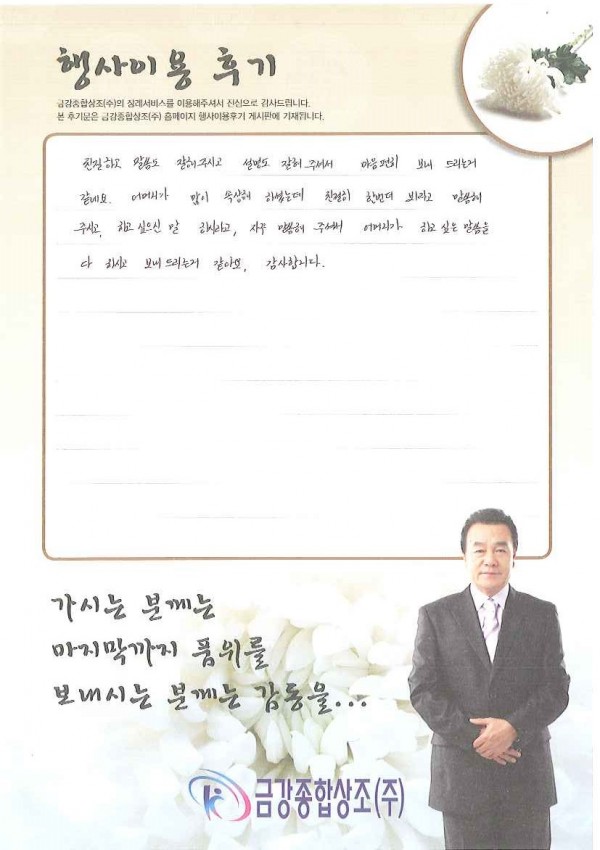 행사이용 후기
금강종합상조(주)의 장례서비스를 이용해주셔서 진심으로 감사드립니다.
본 후기문은 금강종합상조(주) 홈페이지 행사이용후기 게시판에 기재됩니다.
친절하고 말씀도 잘해주시고 설명도 잘해 주셔서 마음편히 보내 드리는거
같네요. 어머니가 많이 속상해 하셨는데 친절히 한번더 보라고 말씀해
주시고, 하고싶으신 말 하시라고, 자꾸 말씀해 주셔서 어머니가 하고 싶은 말씀을
다 하시고 보내드리는거 같아요, 감사합니다.
가시는 분께는
마지막까지 품위를
보내시는 분께는 감동을...
금강종합상조(주)